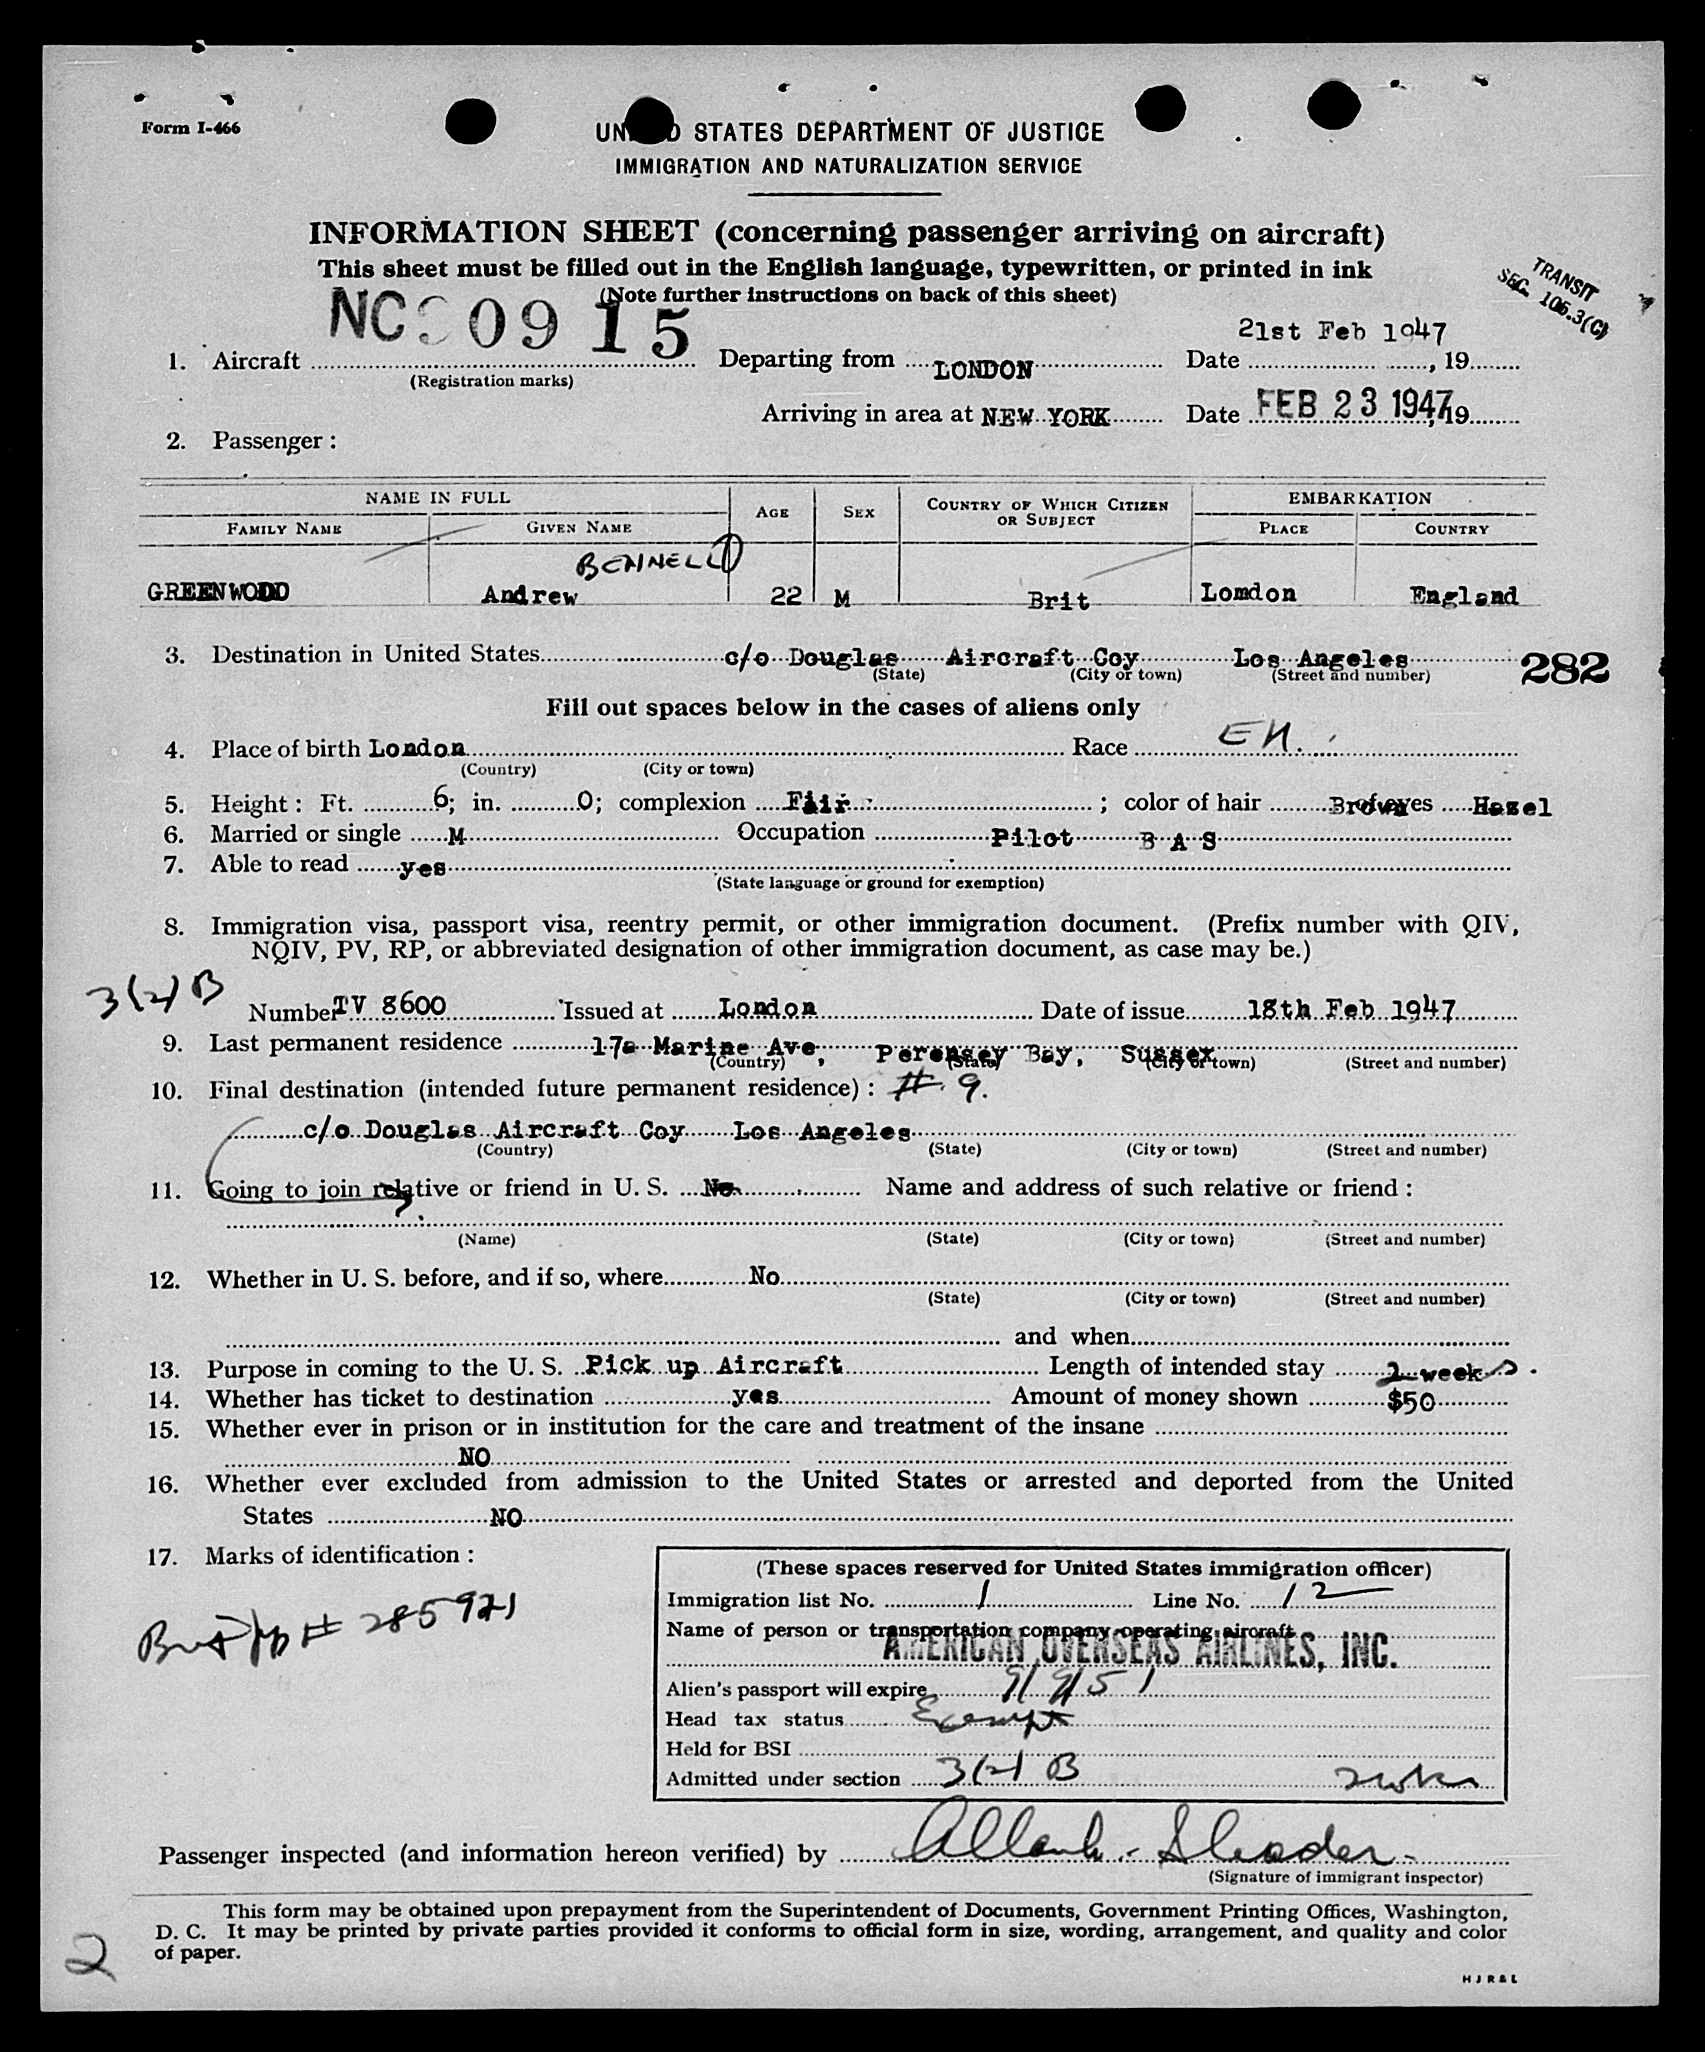 Form I-466
UNITED STATES DEPARTMENT OF JUSTICE
IMMIGRATION AND NATURALIZATION SERVICE
INFORMATION SHEET (concerning passenger arriving on aircraft)
This sheet must be filled out in the English language, typewritten, or printed in ink
(Note further instructions on back of this sheet)
TRANSIT
SEC. 106.3(C)
21st Feb 1947
1. Aircraft NC 0915 Departing from LONDON Date , 19
(Registration marks)
Arriving in area at NEW YORK Date FEB 23 1947 , 19
2. Passenger :
NAME IN FULL AGE SEX COUNTRY OF WHICH CITIZEN OR SUBJECT EMBARKATION
FAMILY NAME GIVEN NAME PLACE COUNTRY
BENNELL
GREENWOOD Andrew 22 M Brit Lomdon England
3. Destination in United States c/o Douglas Aircraft Coy Los Angeles 282
(State) (City or town) (Street and number)
Fill out spaces below in the cases of aliens only
4. Place of birth London Race EN.
(Country) (City or town)
5. Height : Ft. 6; in. 0; complexion Fair ; color of hair Brown of eyes Hazel
6. Married or single M Occupation Pilot B A S
7. Able to read yes
(State language or ground for exemption)
8. Immigration visa, passport visa, reentry permit, or other immigration document. (Prefix number with QIV,
NQIV, PV, RP, or abbreviated designation of other immigration document, as case may be.)
3(2) B
Number TV 8600 Issued at London Date of issue 18th Feb 1947
9. Last permanent residence 17a Marine Ave, Perensey Bay, Sussex
(Country) (State) (City or town) (Street and number)
10. Final destination (intended future permanent residence) : # 9.
c/o Douglas Aircraft Coy Los Angeles
(Country) (State) (City or town) (Street and number)
11. Going to join relative or friend in U. S. No Name and address of such relative or friend :
(Name) (State) (City or town) (Street and number)
12. Whether in U. S. before, and if so, where No
(State) (City or town) (Street and number)
and when
13. Purpose in coming to the U. S. Pick up Aircraft Length of intended stay 2 weeks.
14. Whether has ticket to destination yes Amount of money shown $50
15. Whether ever in prison or in institution for the care and treatment of the insane
NO
16. Whether ever excluded from admission to the United States or arrested and deported from the United
States NO
17. Marks of identification :
Brit pp # 285921
(These spaces reserved for United States immigration officer)
Immigration list No. 1 Line No. 12
Name of person or transportation company operating aircraft
AMERICAN OVERSEAS AIRLINES, INC.
Alien's passport will expire 9/9/51
Head tax status Exempt
Held for BSI
Admitted under section 3(2) B 2 wks
Passenger inspected (and information hereon verified) by
(Signature of immigrant inspector)
This form may be obtained upon prepayment from the Superintendent of Documents, Government Printing Offices, Washington,
D. C. It may be printed by private parties provided it conforms to official form in size, wording, arrangement, and quality and color
of paper.
2
H J R & L